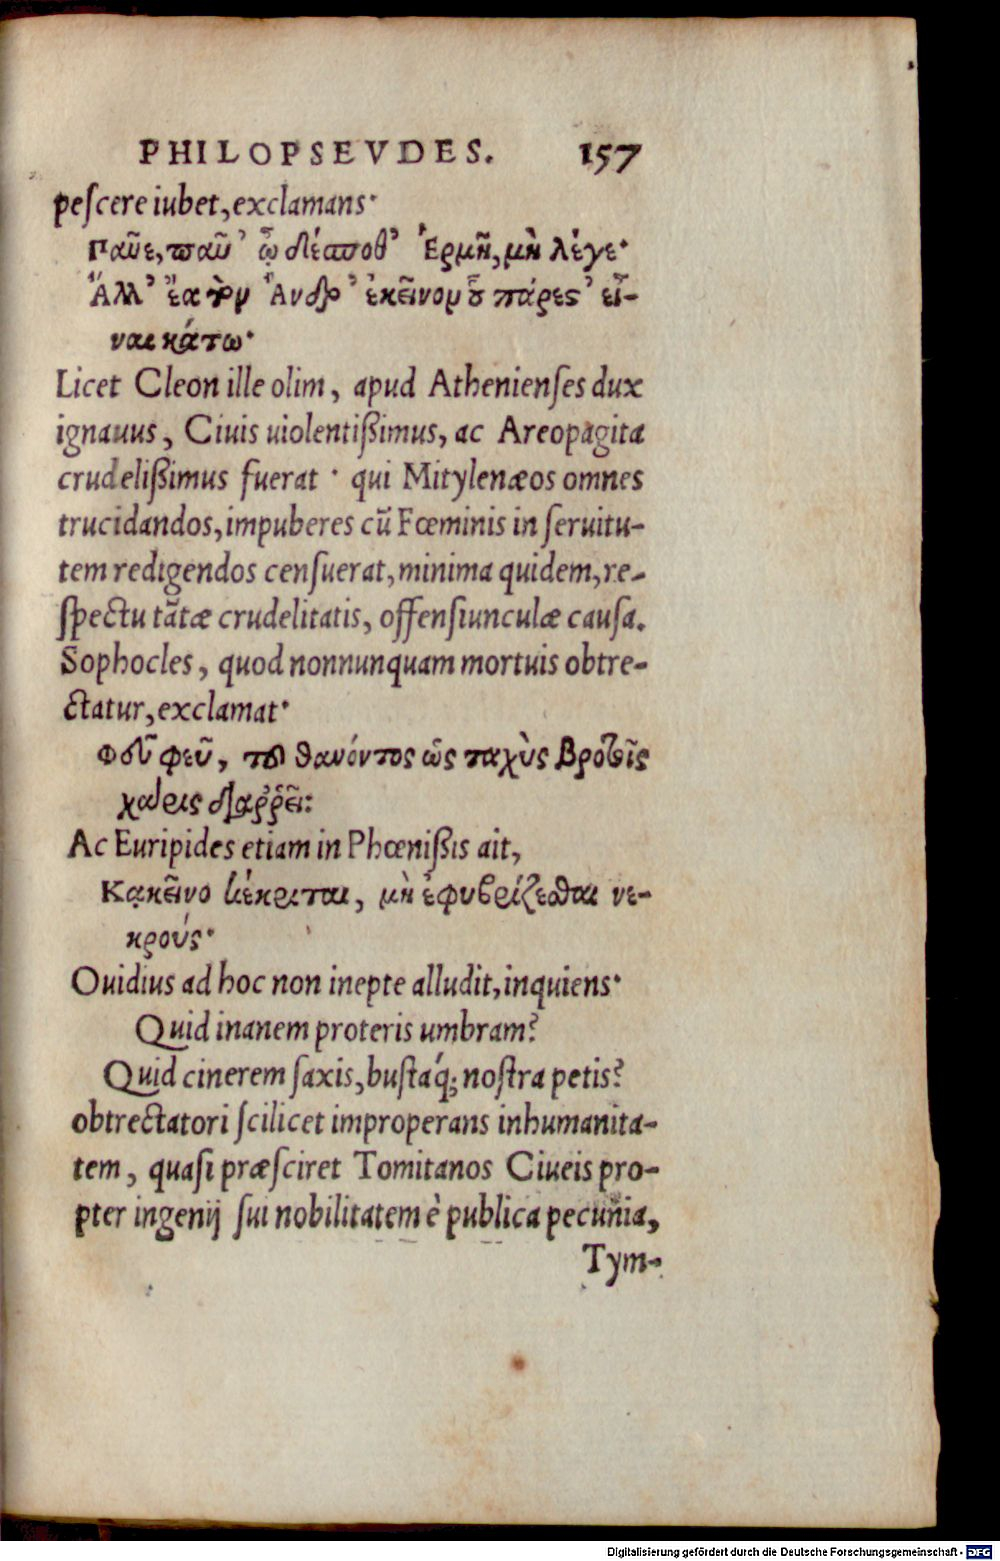 PHILOPSEVDES. 157
peſcere iubet, exclamans·
Παῦε, παῦ’ ὦ δέσποθ’ Ἑρμῆ, μὴ λέγε·
Ἀλλ’ ἔα τὸν Ἄνδρ’ ἐκεῖνον οὗπάρες’ εἶ-
ναι κάτω·
Licet Cleon ille olim, apud Athenienſes dux
ignauus, Ciuis uiolentißimus, ac Areopagita
crudelißimus fuerat · qui Mitylenæos omnes
trucidandos, impuberes cū Fœminis in ſeruitu-
tem redigendos cenſuerat, minima quidem, re-
ſpectu tātæ crudelitatis, offenſiunculæ cauſa.
Sophocles, quod nonnunquam mortuis obtre-
ctatur, exclamat·
Φεῦ φεῦ, τοῦ θανόντος ὡς ταχὺς βροτοῖς
χάρις διαῤῥεῖ:
Ac Euripides etiam in Phœnißis ait,
Κᾳκεῖνο κέκριται, μὴ ἐφυβρίζεσθαι νε-
κρούς·
Ouidius ad hoc non inepte alludit, inquiens·
Quid inanem proteris umbram?
Quid cinerem ſaxis, buſtaq́; noſtra petis?
obtrectatori ſcilicet improperans inhumanita-
tem, quaſi præſciret Tomitanos Ciueis pro-
pter ingenij ſui nobilitatem è publica pecunia,
Tym-
Digitalisierung gefördert durch die Deutsche Forschungsgemeinschaft - DFG